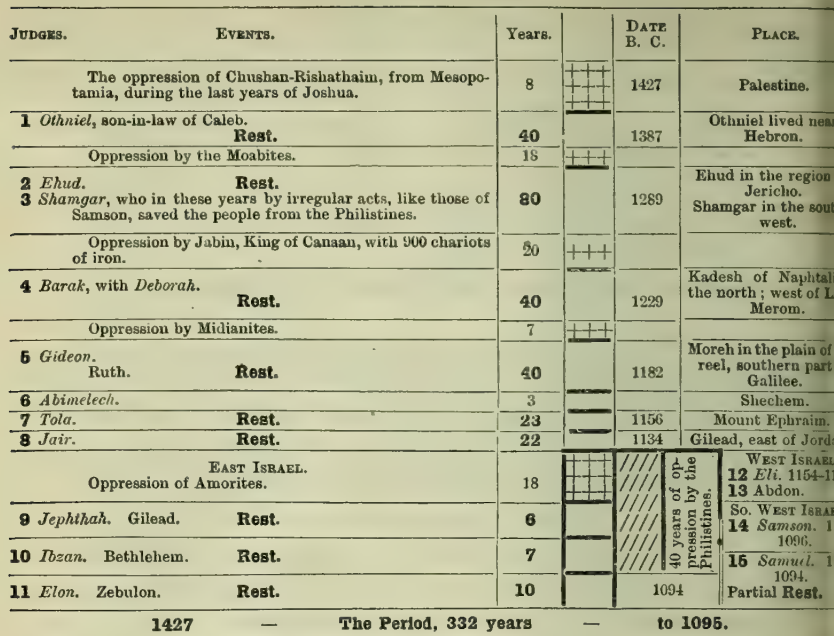 JUDGES. EVENTS. Years. DATE B. C. PLACE.
The oppression of Chushan-Rishathaim, from Mesopo-
tamia, during the last years of Joshua. 8 1427 Palestine.
1 Othniel, son-in-law of Caleb.
Rest. 40 1387
Othniel lived nea
Hebron.
Oppression by the Moabites. 18
2 Ehud. Rest.
3 Shamgar, who in these years by irregular acts, like those of
Samson, saved the people from the Philistines.
80 1289
Ehud in the region
Jericho.
Shamgar in the sout
west.
Oppression by Jabin, King of Canaan, with 900 chariots
of iron.
20
4 Barak, with Deborah.
Rest. 40 1229
Kadesh of Naphtal
the north; west of L
Merom.
Oppression by Midianites. 7
5 Gideon.
Ruth. Rest. 40 1182
Moreh in the plain of
reel, southern part
Galilee.
6 Abimelech. 3 Shechem.
7 Tola. Rest. 23 1156 Mount Ephraim.
8 Jair. Rest. 22 1134 Gilead, east of Jord
EAST ISRAEL.
Oppression of Amorites. 18
9 Jephthah. Gilead. Rest. 6
10 Ibzan. Bethlehem. Rest. 7
11 Elon. Zebulon. Rest. 10 1094
40 years of op-
pression by the
Philistines.
WEST ISRAEL
12 Eli. 1154-1
13 Abdon.
SO. WEST ISRA
14 Samson. 1
1096.
15 Samuel. 1
1094.
Partial Rest.
1427 — The Period, 332 years — to 1095.